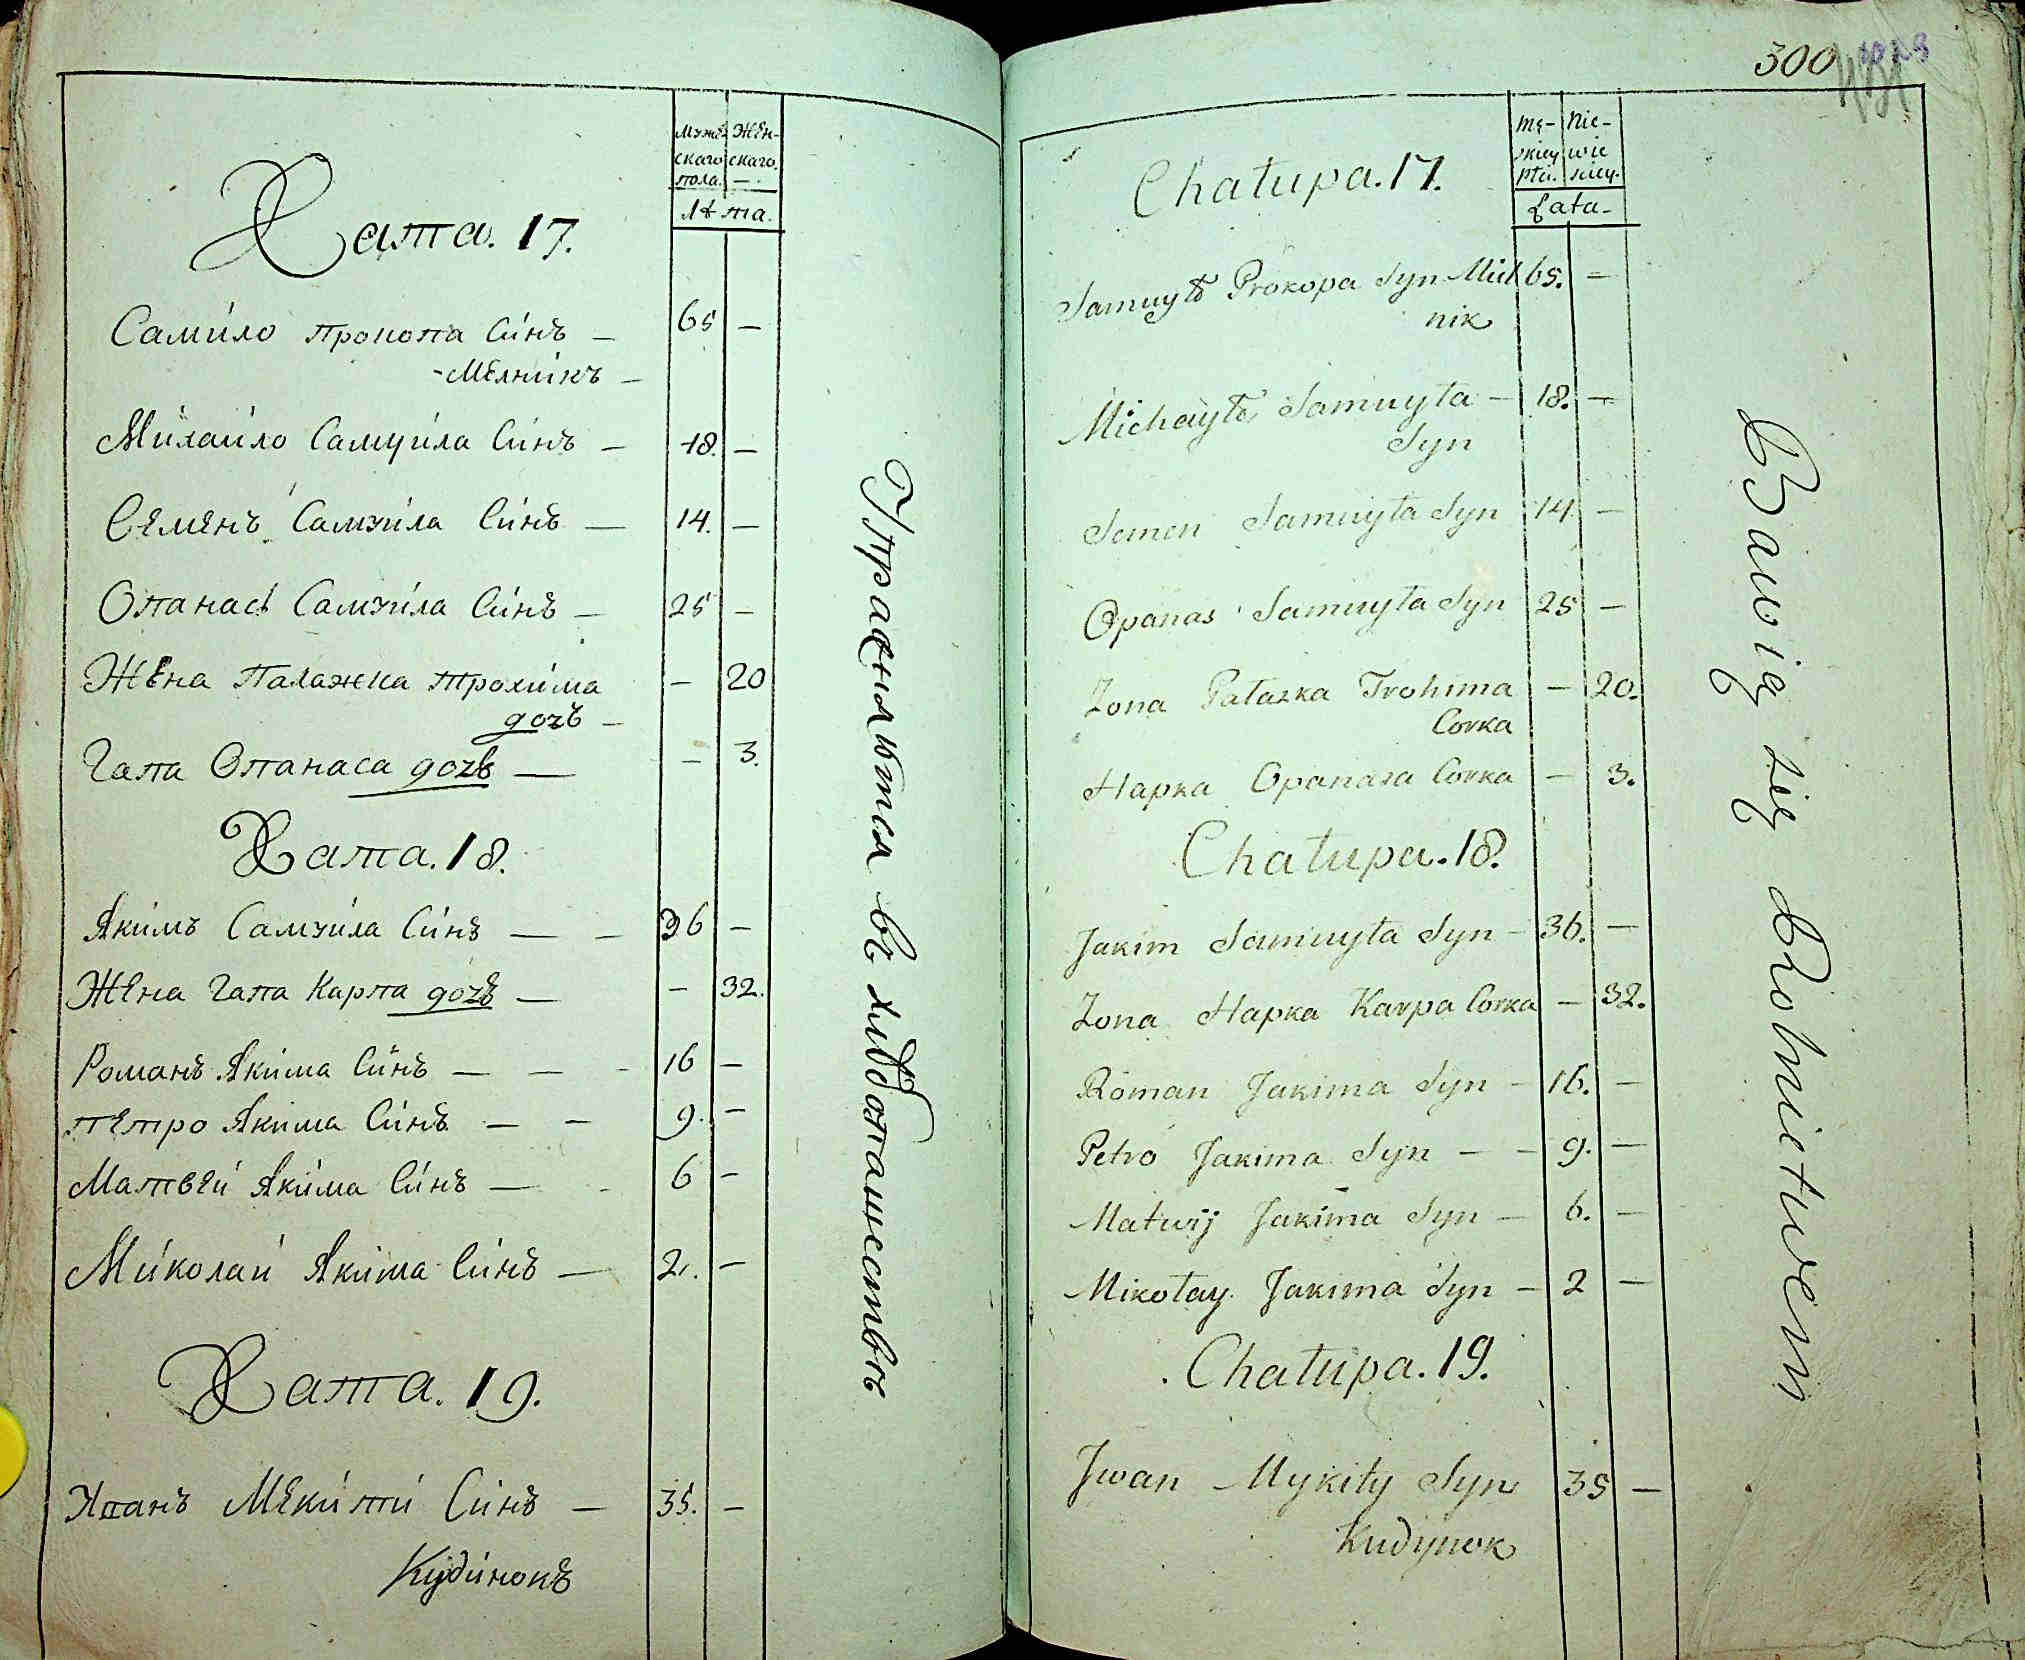 Муже- Жен-
скаго скаго
пола. —
Лѣта.
Хата. 17.
Самійло Прокопа Синъ — 65 —
-Мелникъ —
Михайло Самуила Синъ — 18. —
Семенъ Самуила Синъ — 14. —
Опанасъ Самуила Синъ — 25 —
Жена Палажка Трохима — 20
дочь —
Гапа Опанаса дочь — — 3.
Хата. 18.
Якимъ Самуила Синъ — — 36 —
Жена Гапа Карпа дочь — — 32.
Романъ Якима Синъ — — - 16 —
Петро Якима Синъ — — 9. —
Матвей Якима Синъ — - 6 —
Миколай Якима Синъ — 2. —
Хата. 19.
Иванъ Мекити Синъ — 35. —
Кудинокъ
Упражняются въ хлѣбопашествѣ
300
Mę- Nie-
skiey wie
płci. sciey.
Łata-
Chałupa. 17.
Samuyło Prokopa Syn Miel 65. —
nik
Michayło Samuyła — 18. —
Syn
Semen Samuyła Syn 14. —
Opanas Samuyła Syn 25 —
Żona Pałaszka Trohima — 20.
Corka
Hapka Opanasa Corka — 3.
Chałupa. 18.
Jakim Samuyła Syn - 36. —
Żona Hapka Karpa Corka — 32.
Roman Jakima Syn — 16. —
Petro Jakima Syn — — 9. —
Matwij Jakima Syn — 6. —
Mikołay Jakima Syn — 2 —
Chałupa. 19.
Jwan Mykity Syn 35 —
Kudynok
Bawią się Rolnictwem